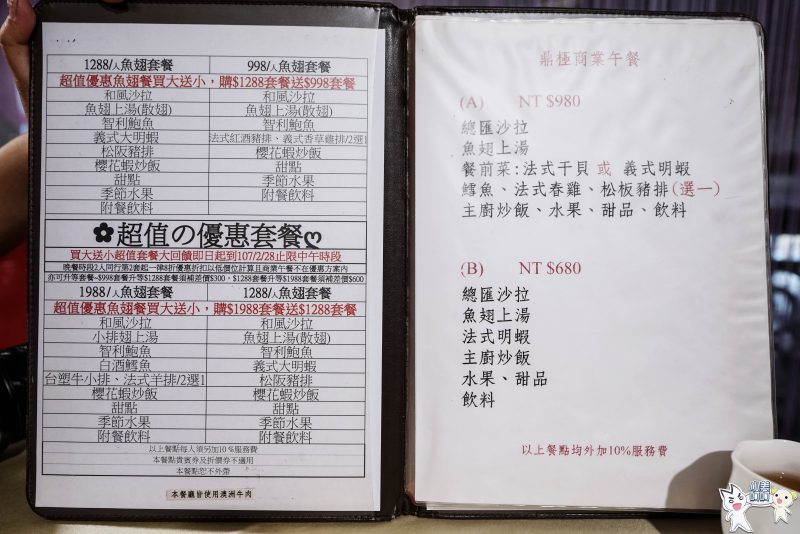 1288/人魚翅套餐 998/人魚翅套餐
超值優惠魚翅餐買大送小，購$1288套餐送$998套餐
和風沙拉 和風沙拉
魚翅上湯(散翅) 魚翅上湯(散翅)
智利鮑魚 智利鮑魚
義式大明蝦 法式紅酒豬排、義式香草雞排/2選1
松阪豬排 櫻花蝦炒飯
櫻花蝦炒飯 甜點
甜點 季節水果
季節水果 附餐飲料
附餐飲料
✿超值の優惠套餐ღ
買大送小超值套餐大回饋即日起到107/2/28止限中午時段
晚餐時段2人同行第2套起一律8折優惠折扣以低價位計算且商業午餐不在優惠方案內
亦可升等套餐~$998套餐升等$1288套餐須補差價$300，$1288套餐升等$1988套餐須補差價$600
1988/人魚翅套餐 1288/人魚翅套餐
超值優惠魚翅餐買大送小，購$1988套餐送$1288套餐
和風沙拉 和風沙拉
小排翅上湯 魚翅上湯(散翅)
智利鮑魚 智利鮑魚
白酒鱈魚 義式大明蝦
台塑牛小排、法式羊排/2選1 松阪豬排
櫻花蝦炒飯 櫻花蝦炒飯
甜點 甜點
季節水果 季節水果
附餐飲料 附餐飲料
以上餐點每人須另加10％服務費
本餐點貴賓券及折價券不適用
本餐點恕不外帶
本餐廳皆使用澳洲牛肉
鼎極商業午餐
(A) NT $980
總匯沙拉
魚翅上湯
餐前菜:法式干貝 或 義式明蝦
鱈魚、法式春雞、松板豬排(選一)
主廚炒飯、水果、甜品、飲料
(B) NT $680
總匯沙拉
魚翅上湯
法式明蝦
主廚炒飯
水果、甜品
飲料
以上餐點均外加10%服務費